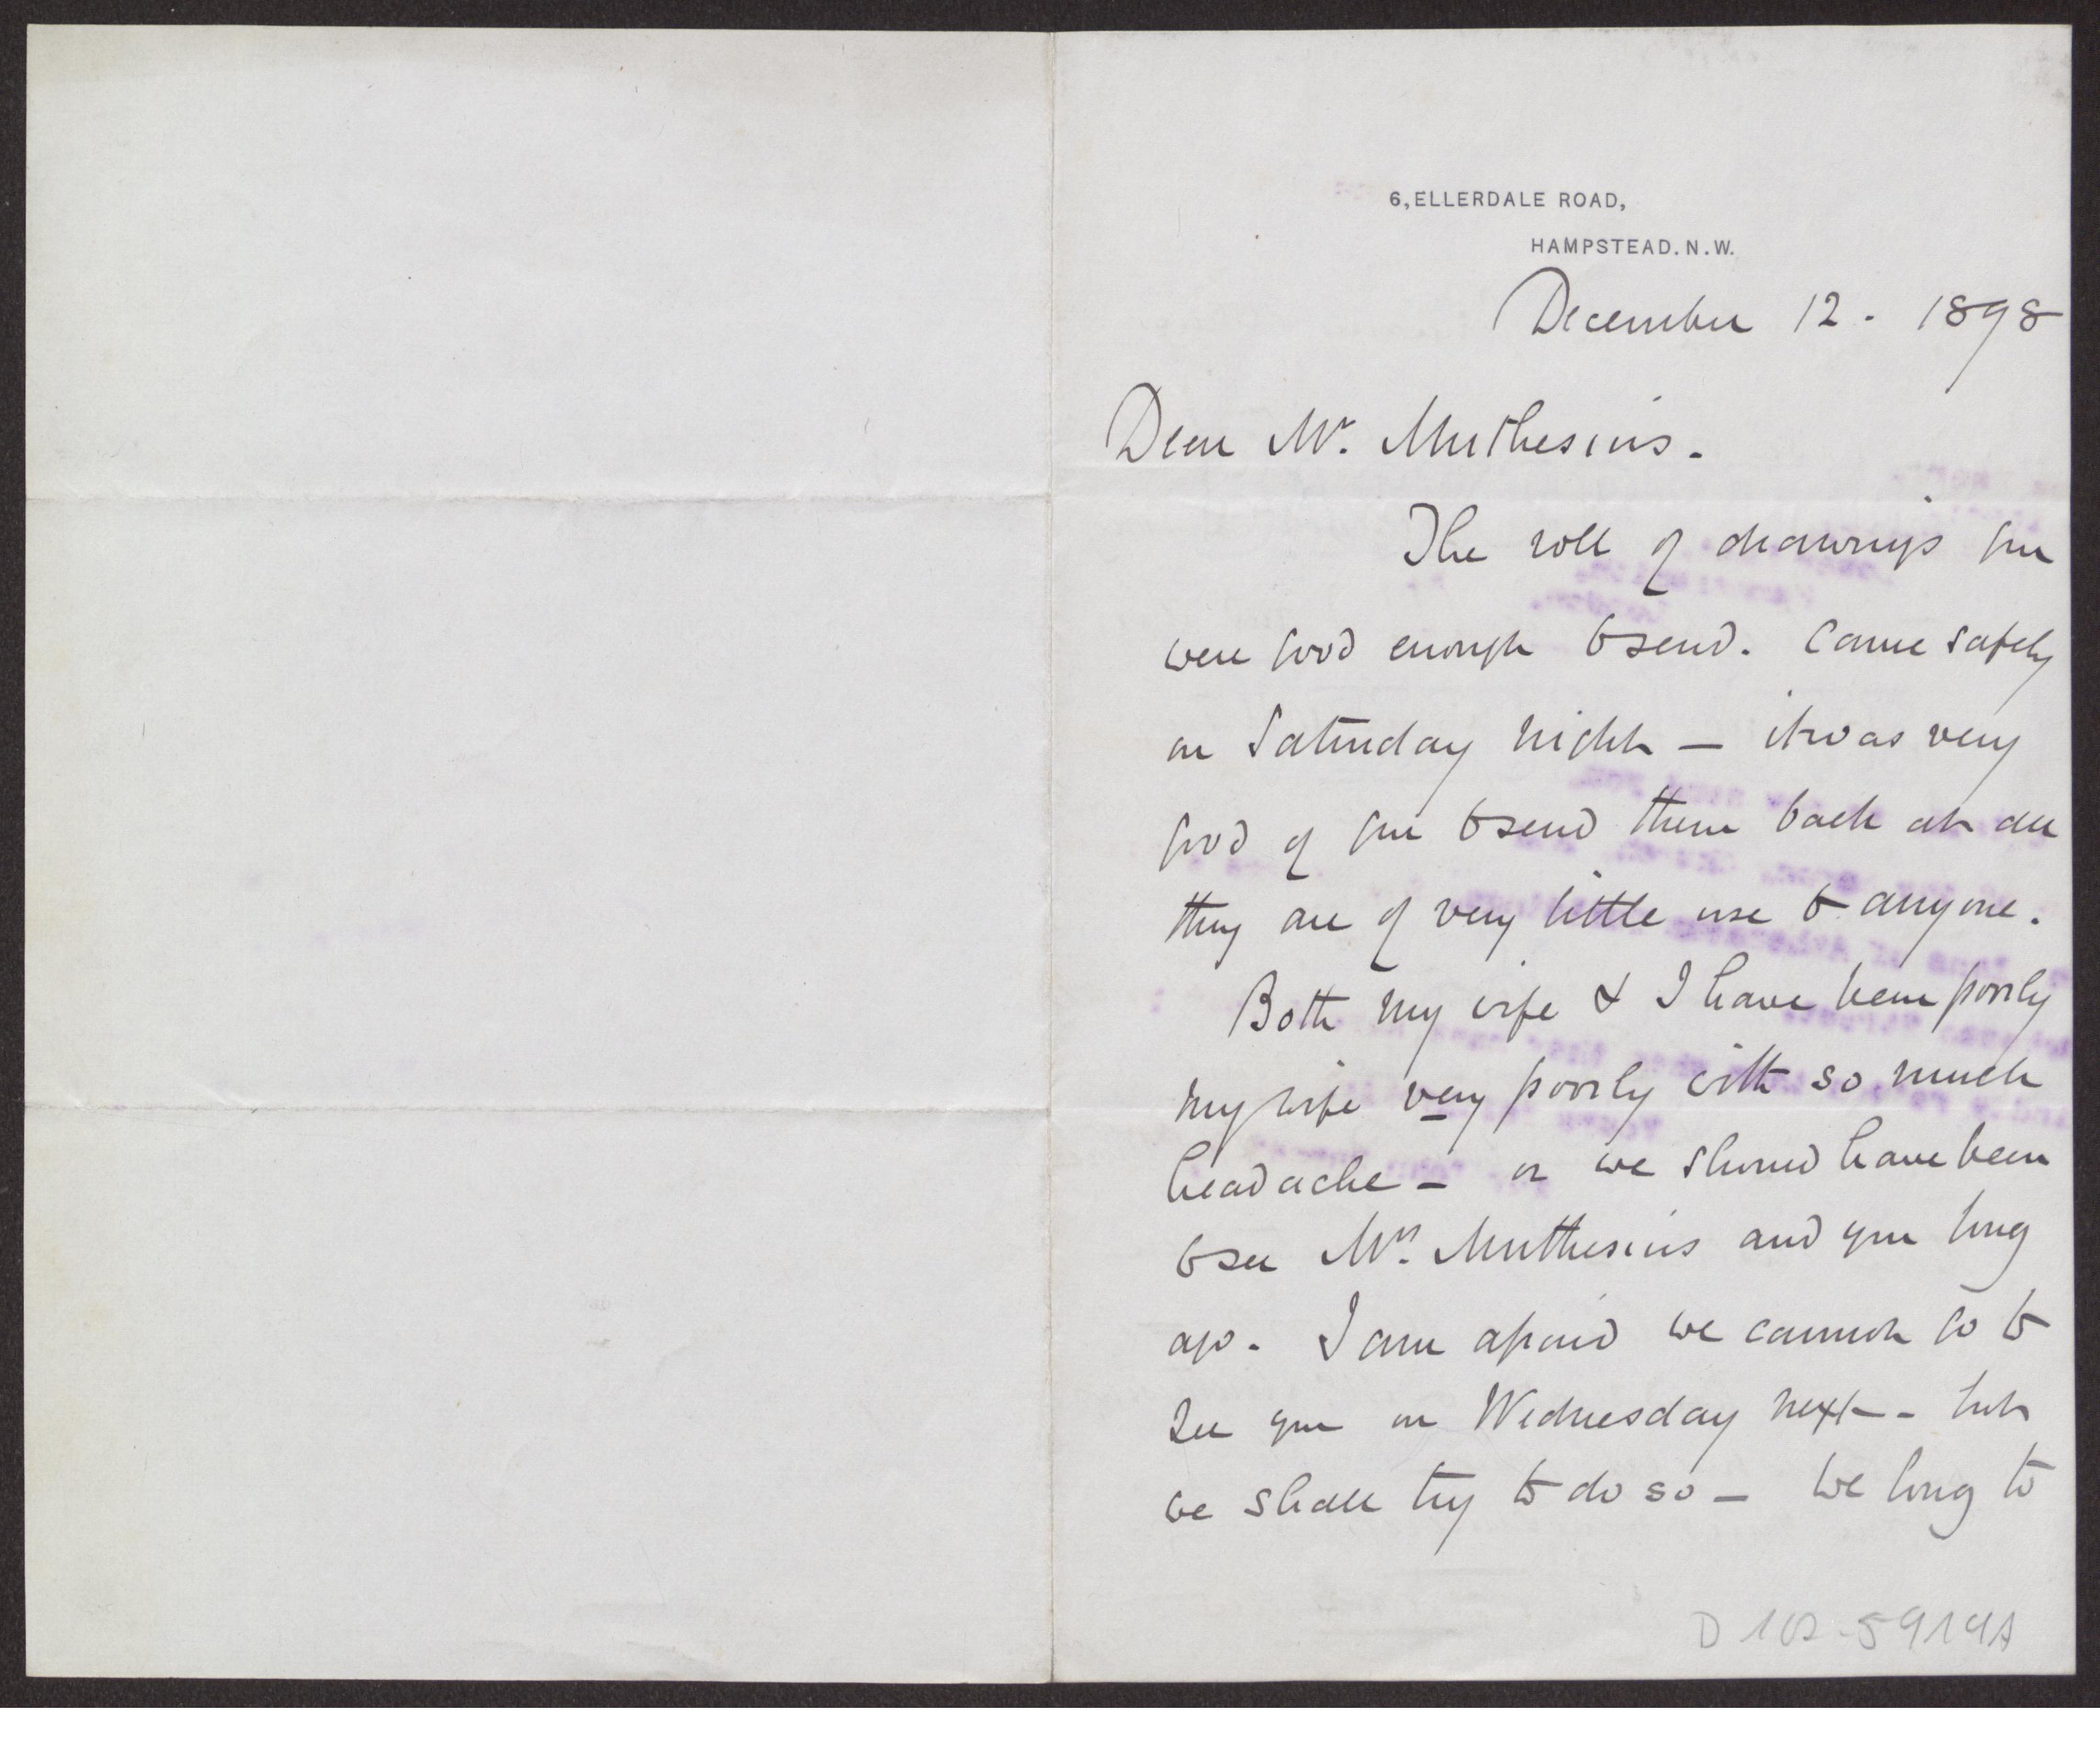 6, ELLERDALE ROAD,
HAMPSTEAD. N. W.
December 12 . 1898
Dear Mr. Muthesius.
The roll of drawings you
were good enough to send. came safely
on Saturday night — it was very
good of you to send them back at all
they are of very little use to anyone.
Both my wife & I have been poorly
my wife very poorly with so much
headache — or we should have been
to see Mrs. Muthesius and you long
ago. I am afraid we cannot go to
see you on Wednesday next — but
we shall try to do so — We long to
D 102-5919A